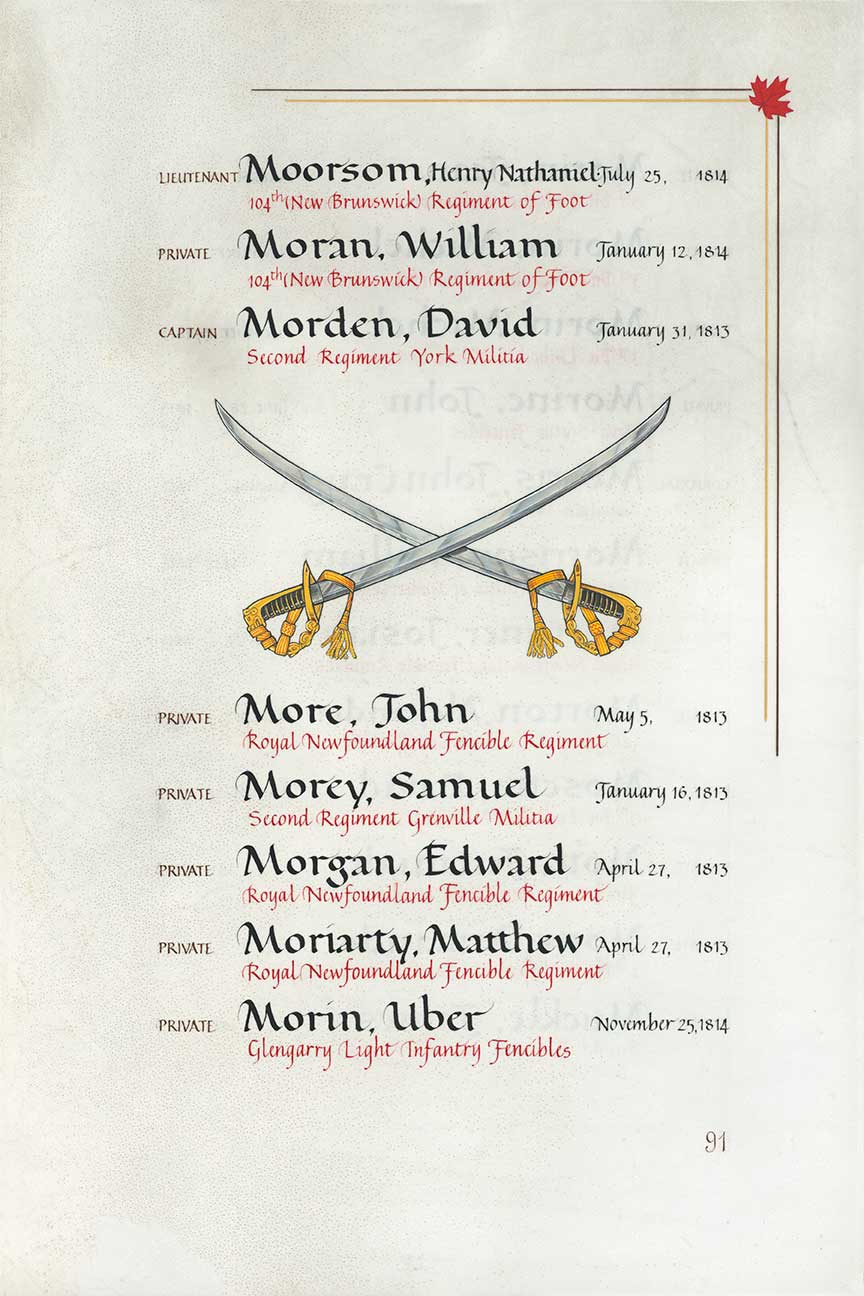 LIEUTENANT Moorsom, Henry Nathaniel July 25, 1814
104th (New Brunswick) Regiment of Foot
PRIVATE Moran, William January 12, 1814
104th (New Brunswick) Regiment of Foot
CAPTAIN Morden, David January 31, 1813
Second Regiment York Militia
PRIVATE More, John May 5, 1813
Royal Newfoundland Fencible Regiment
PRIVATE Morey, Samuel January 16, 1813
Second Regiment Grenville Militia
PRIVATE Morgan, Edward April 27, 1813
Royal Newfoundland Fencible Regiment
PRIVATE Moriarty, Matthew April 27, 1813
Royal Newfoundland Fencible Regiment
PRIVATE Morin, Uber November 25, 1814
Glengarry Light Infantry Fencibles
91